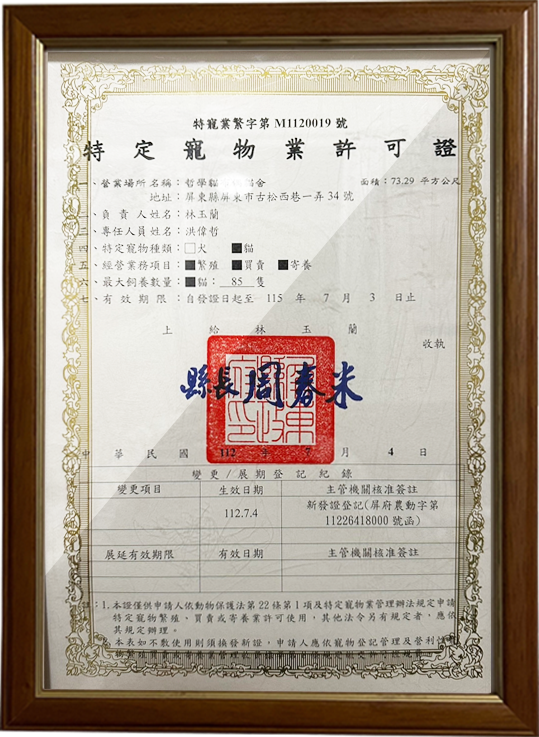 特寵業繁字第 M1120019 號
特定寵物業許可證
、營業場所名稱：哲學貓 舍 面積：73.29 平方公尺
地址：屏東縣屏東市古松西巷一弄 34 號
、負責人姓名：林玉蘭
三、專任人員姓名：洪偉哲
四、特定寵物種類：□犬 ■貓
五、經營業務項目：■繁殖 ■買賣 ■寄養
六、最大飼養數量：■貓： 85 隻
七、有效期限：自發證日起至 115 年 7 月 3 日止
上給林玉蘭
收執
縣長周春米
中華民國 112 年 7 月 4 日
變更/展期登記紀錄
變更項目 生效日期 主管機關核准簽註
112.7.4 新發證登記(屏府農動字第
11226418000 號函)
展延有效期限 有效日期 主管機關核准簽註
證：1.本證僅供申請人依動物保護法第 22 條第 1 項及特定寵物業管理辦法規定申請
特定寵物繁殖、買賣或寄養業許可使用，其他法令另有規定者，應依
其規定辦理。
本表如不敷使用則須換發新證，申請人應依寵物登記管理及營利性